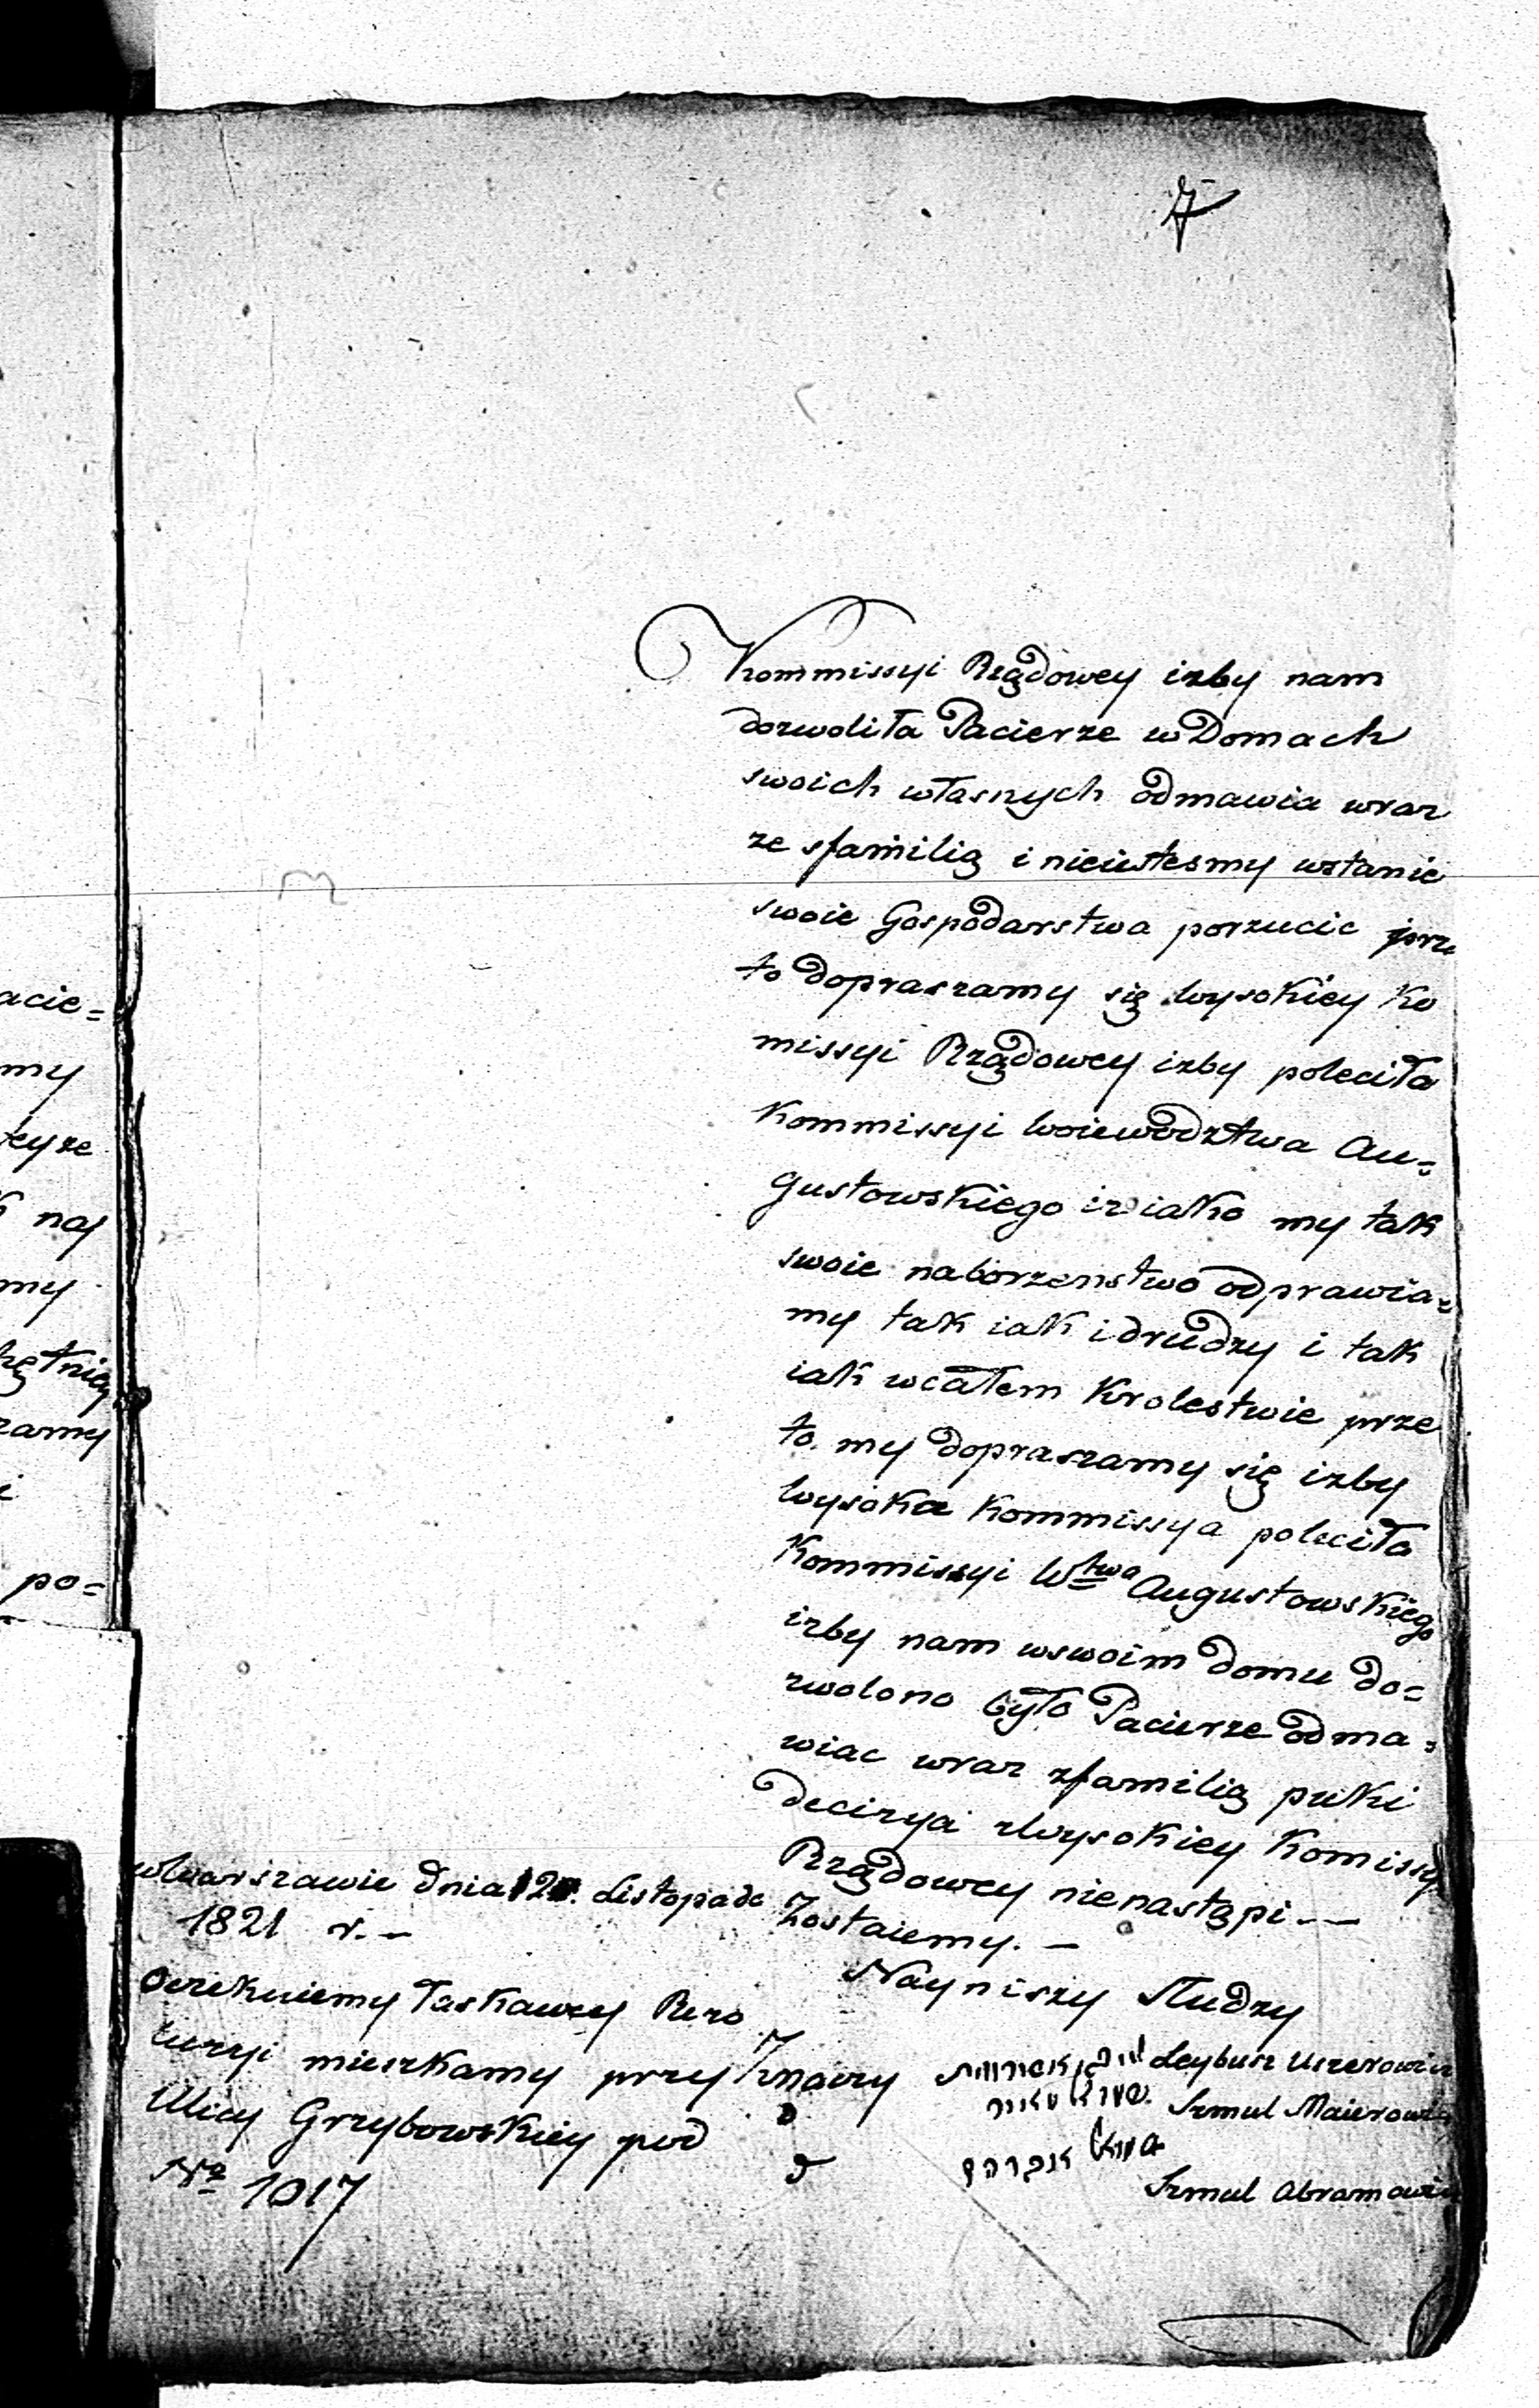 7
acie=
my
teyże
K nay
my
zamy
i
po=
Kommissyi Rządowey izby nam
dozwoliła Pacierze w Domach
swoich własnych odmawia wraz
ze sfamilią i nieiestesmy wstanie
swoie Gospodarstwa porzucic prze
to dopraszamy się wysokiey Ko
missyi Rządowey izby poleciła
Kommissyi Woiewodztwa Au=
gustowskiego iz iako my tak
swoie naborzenstwo odprawia=
my tak iak i drudzy i tak
iak wcałem Krolestwie prze
to. my dopraszamy się izby
wysoka Kommissya poleciła
Kommissyi Wtwa Augustowskiego
izby nam wswoim domu do=
zwolono było Pacierze odma=
wiac wraz zfamilią puki
decizya zWysokiey Komissyi
Rządowey nienastąpi —
Zostaiemy. —
Nayniszy Słudzy
wWarszawie dnia 12. Listopada
1821 r. —
Oczekuiemy łaskawey Rezo
lucyi mieszkamy przy
Ulicy Grzybowskiey pod
No 1017
Znaczy Leybusz Uszerowicz
שמואל מאיר Szmul Maierowicz
שמואל אברהם
Szmul Abramowicz